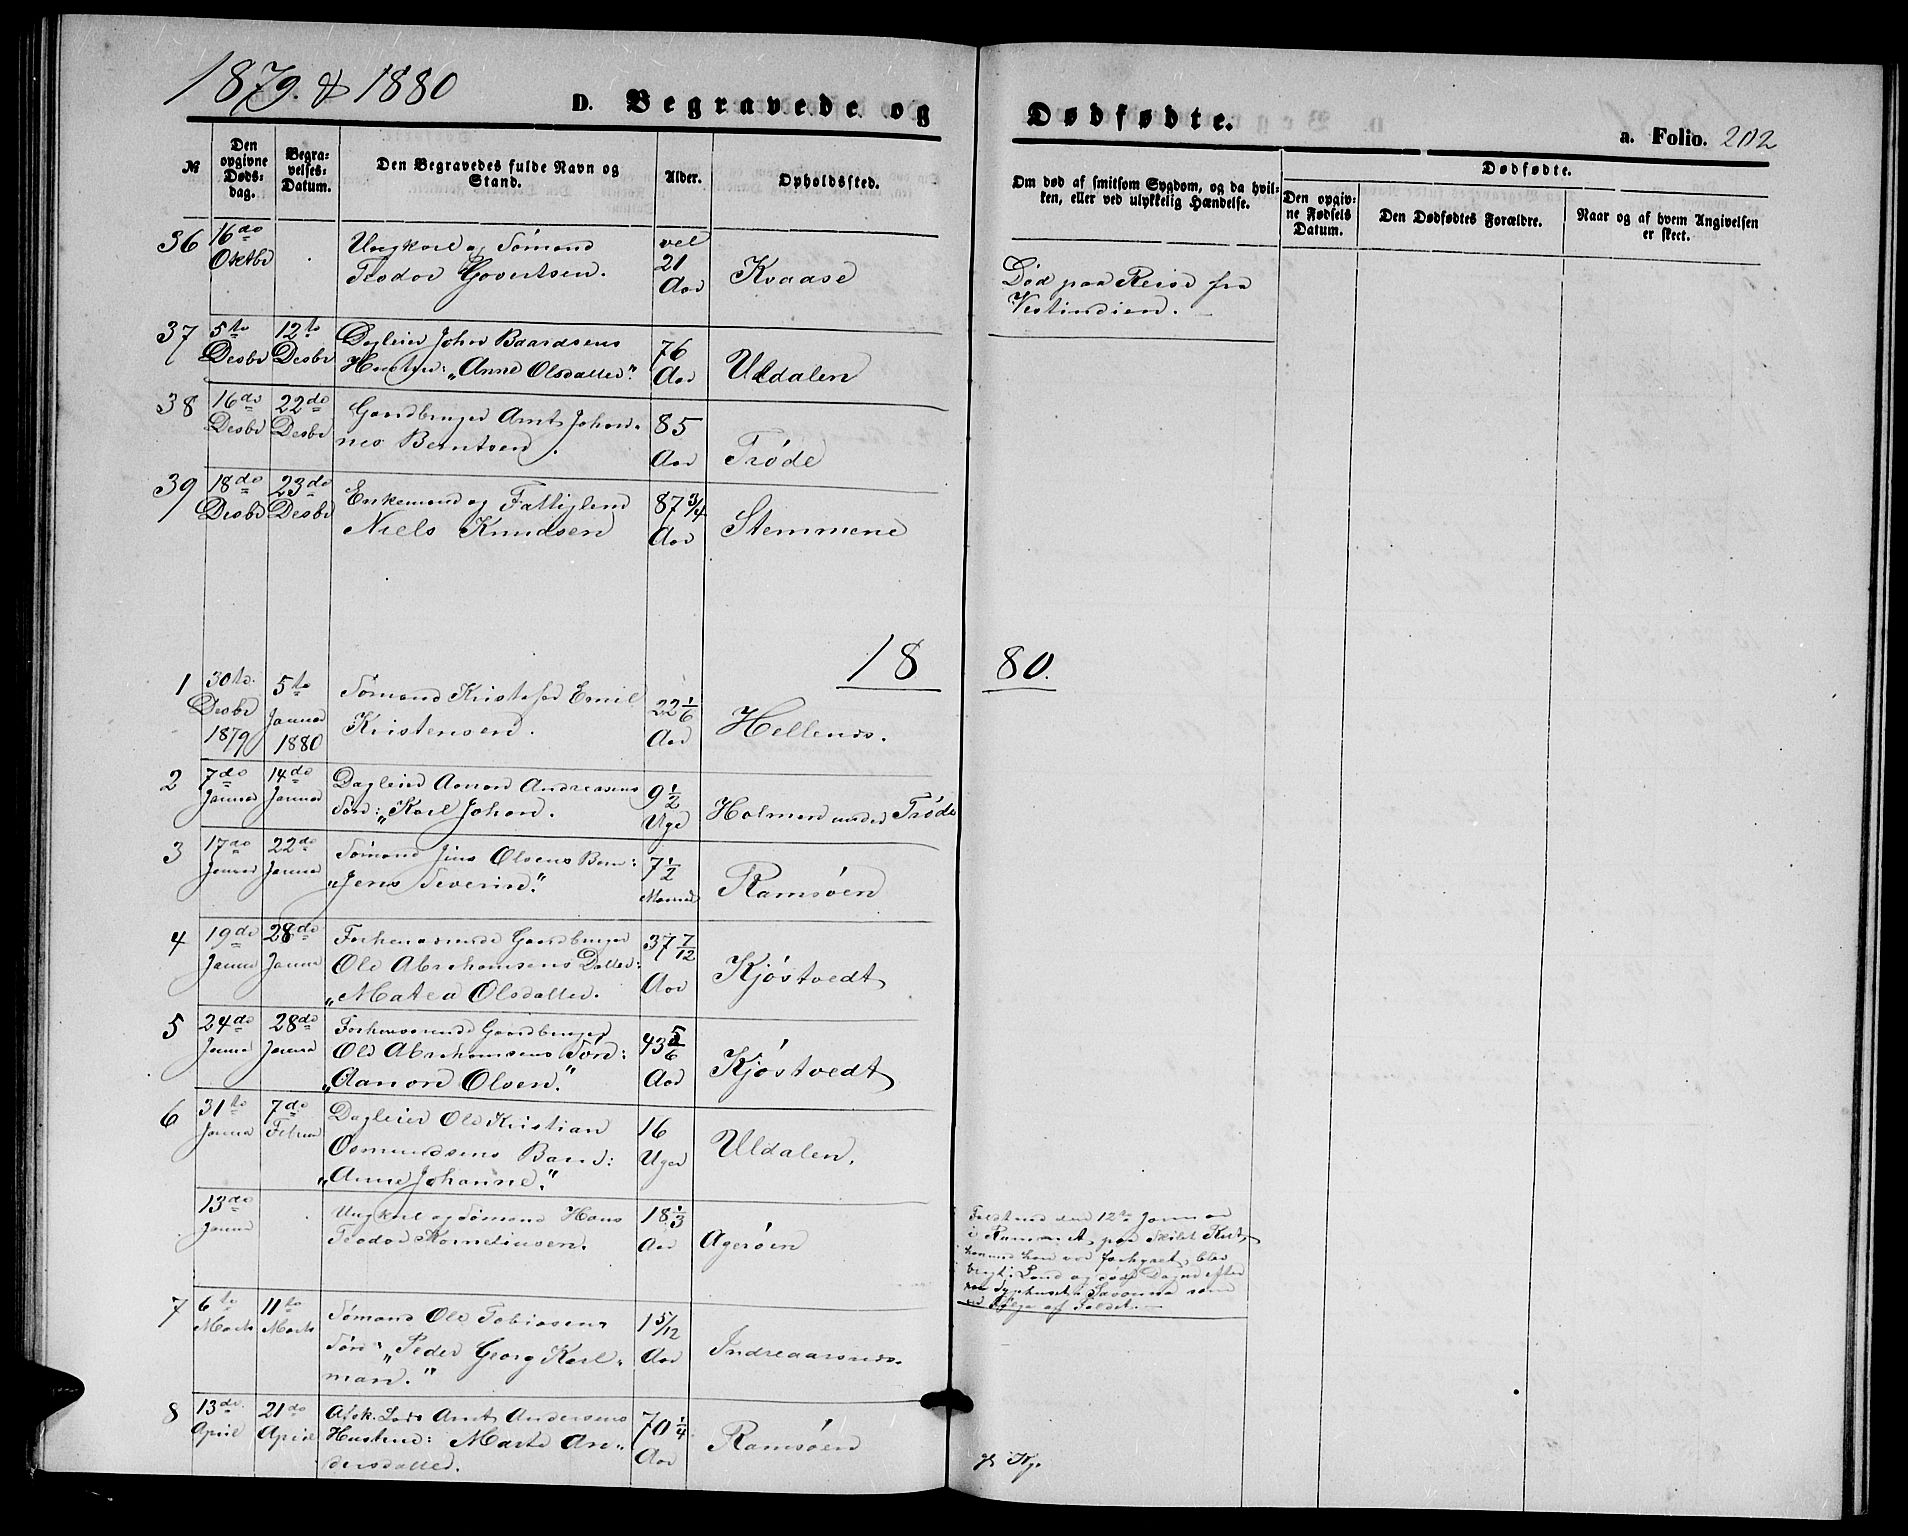 1879 & 1880
D. Begravede og Dødfødte.
a. Folio. 202
№
Den opgivne Døds-dag.
Begra-velses-Datum.
Den Begravedes fulde Navn og Stand.
Alder.
Opholdssted.
Om død af smitsom Sygdom, og da hvil-ken, eller ved ulykkelig Hændelse.
Dødfødte.
Den opgiv-ne Fødsels Datum.
Den Dødfødtes Forældre.
Naar og af hvem Angivelsen er skeet.
36 16do Ungkarl og Sømand vel
Oktbr Teodor Govertsen. 21 Kvaase Død paa Reise fra
Aar Vestindien.
37 5te 12te Dagleier John Baardsens 76
Desbr Desbr Hustru: „Anne Olsdatter." Aar Uldalen
38 16de 22de Gaardbruger Arnt Johan- 85
Desbr Desbr nes Berntsen. Aar Trøde
39 18de 23de Enkemand og Fattiglem 87 3/4
Desbr Desbr Niels Knudsen Aar Stemmene
1880.
1 30te 5te Sømand Kristofer Emil 22 1/6
Desbr Januar Kristensen. Aar Hellenes.
1879 1880
2 7de 14de Dagleier Aanon Andreasens 9 1/2
Januar Januar Søn: „Karl Johan. Uge Holmen under Trøde
3 17de 22de Sømand Jens Olsens Barn: 7 1/2
Januar Januar „Jens Severin." Maaned Ramsøen
4 19de 28de Forhenværende Gaardbruger 37 7/12
Januar Januar Ole Abrahamsens Datter: Aar Kjøstvedt
„Matea Olsdatter.
5 24de 28de Forhenværende Gaardbruger 43 5/6
Januar Januar Ole Abrahamsens Søn: Aar Kjøstvedt
„Aanon Olsen."
6 31te 7de Dagleier Ole Kristian 16
Januar Februar Osmundsens Barn: Uger Uldalen.
„Anne Johanne."
13de Ungkarl og Sømand Hans 18 1/3
Januar Teodor Korneliussen. Aar Agerøen
Faldt ned den 12te Januar
i Rummet, paa Skibet
hvormed han var forhyret, blev
bragt i Land og døde Dagen efter
paa Sygehuset i Savanna som
en Følge af Faldet.
7 6te 11te Sømand Ole Tobiasens 1 5/12
Marts Marts Søn: „Peder Georg Karl- Aar Indreaarsnes.
man."
8 13de 21de Afsk. Lods Arnt Andersens 70 1/4
April April Hustru: Marte An- Aar Ramsøen
dersdatter.